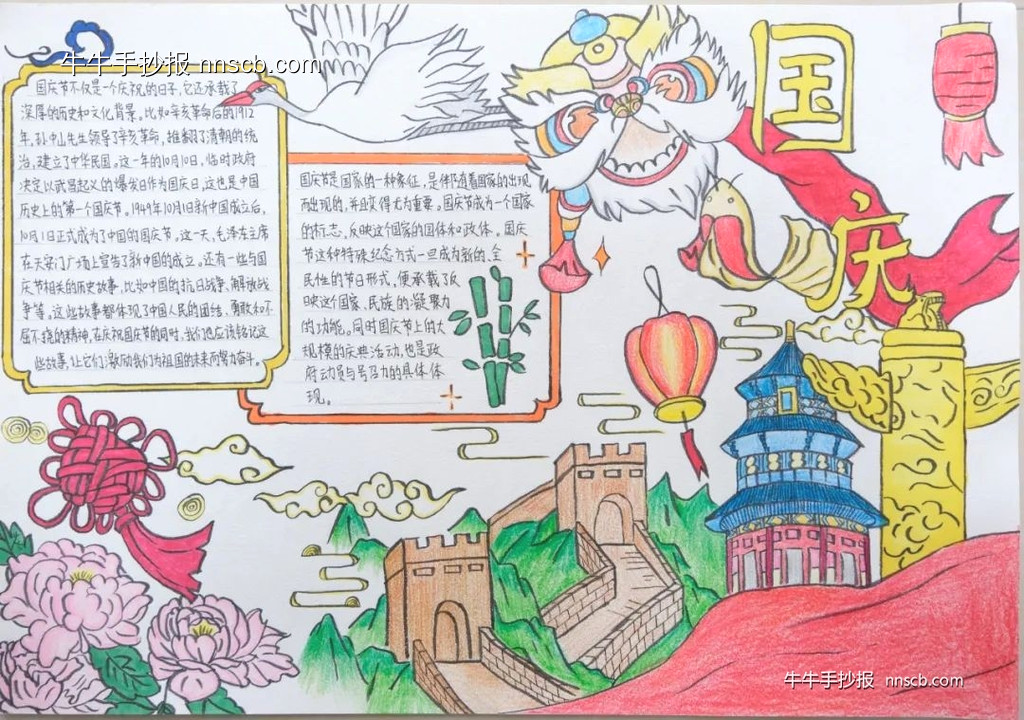 牛牛手抄报 nnscb.com
国庆节不仅是一个庆祝的日子,它还承载了
深厚的历史和文化背景。比如辛亥革命后的1912
年,孙中山先生领导了辛亥革命,推翻了清朝的统
治,建立了中华民国。这一年的10月10日,临时政府
决定以武昌起义的爆发日作为国庆日,这也是中国
历史上的第一个国庆节。1949年10月1日新中国成立后,
10月1日正式成为了中国的国庆节。这一天,毛泽东主席
在天安门广场上宣告了新中国的成立。还有一些与国
庆节相关的历史故事,比如中国的抗日战争、解放战
争等。这些故事都体现了中国人民的团结、勇敢和不
屈不挠的精神,在庆祝国庆节的同时,我们也应该铭记这
些故事,让它们激励我们为祖国的未来而努力奋斗。
国庆节是国家的一种象征,是伴随着国家的出现
而出现的,并且变得尤为重要。国庆节成为一个国家
的标志,反映这个国家的国体和政体。国庆
节这种特殊纪念方式一旦成为新的、全
民性的节日形式,便承载了反
映这个国家、民族的凝聚力
的功能。同时国庆节上的大
规模的庆典活动,也是政
府动员与号召力的具体体
现。
国
庆
牛牛手抄报 nnscb.com